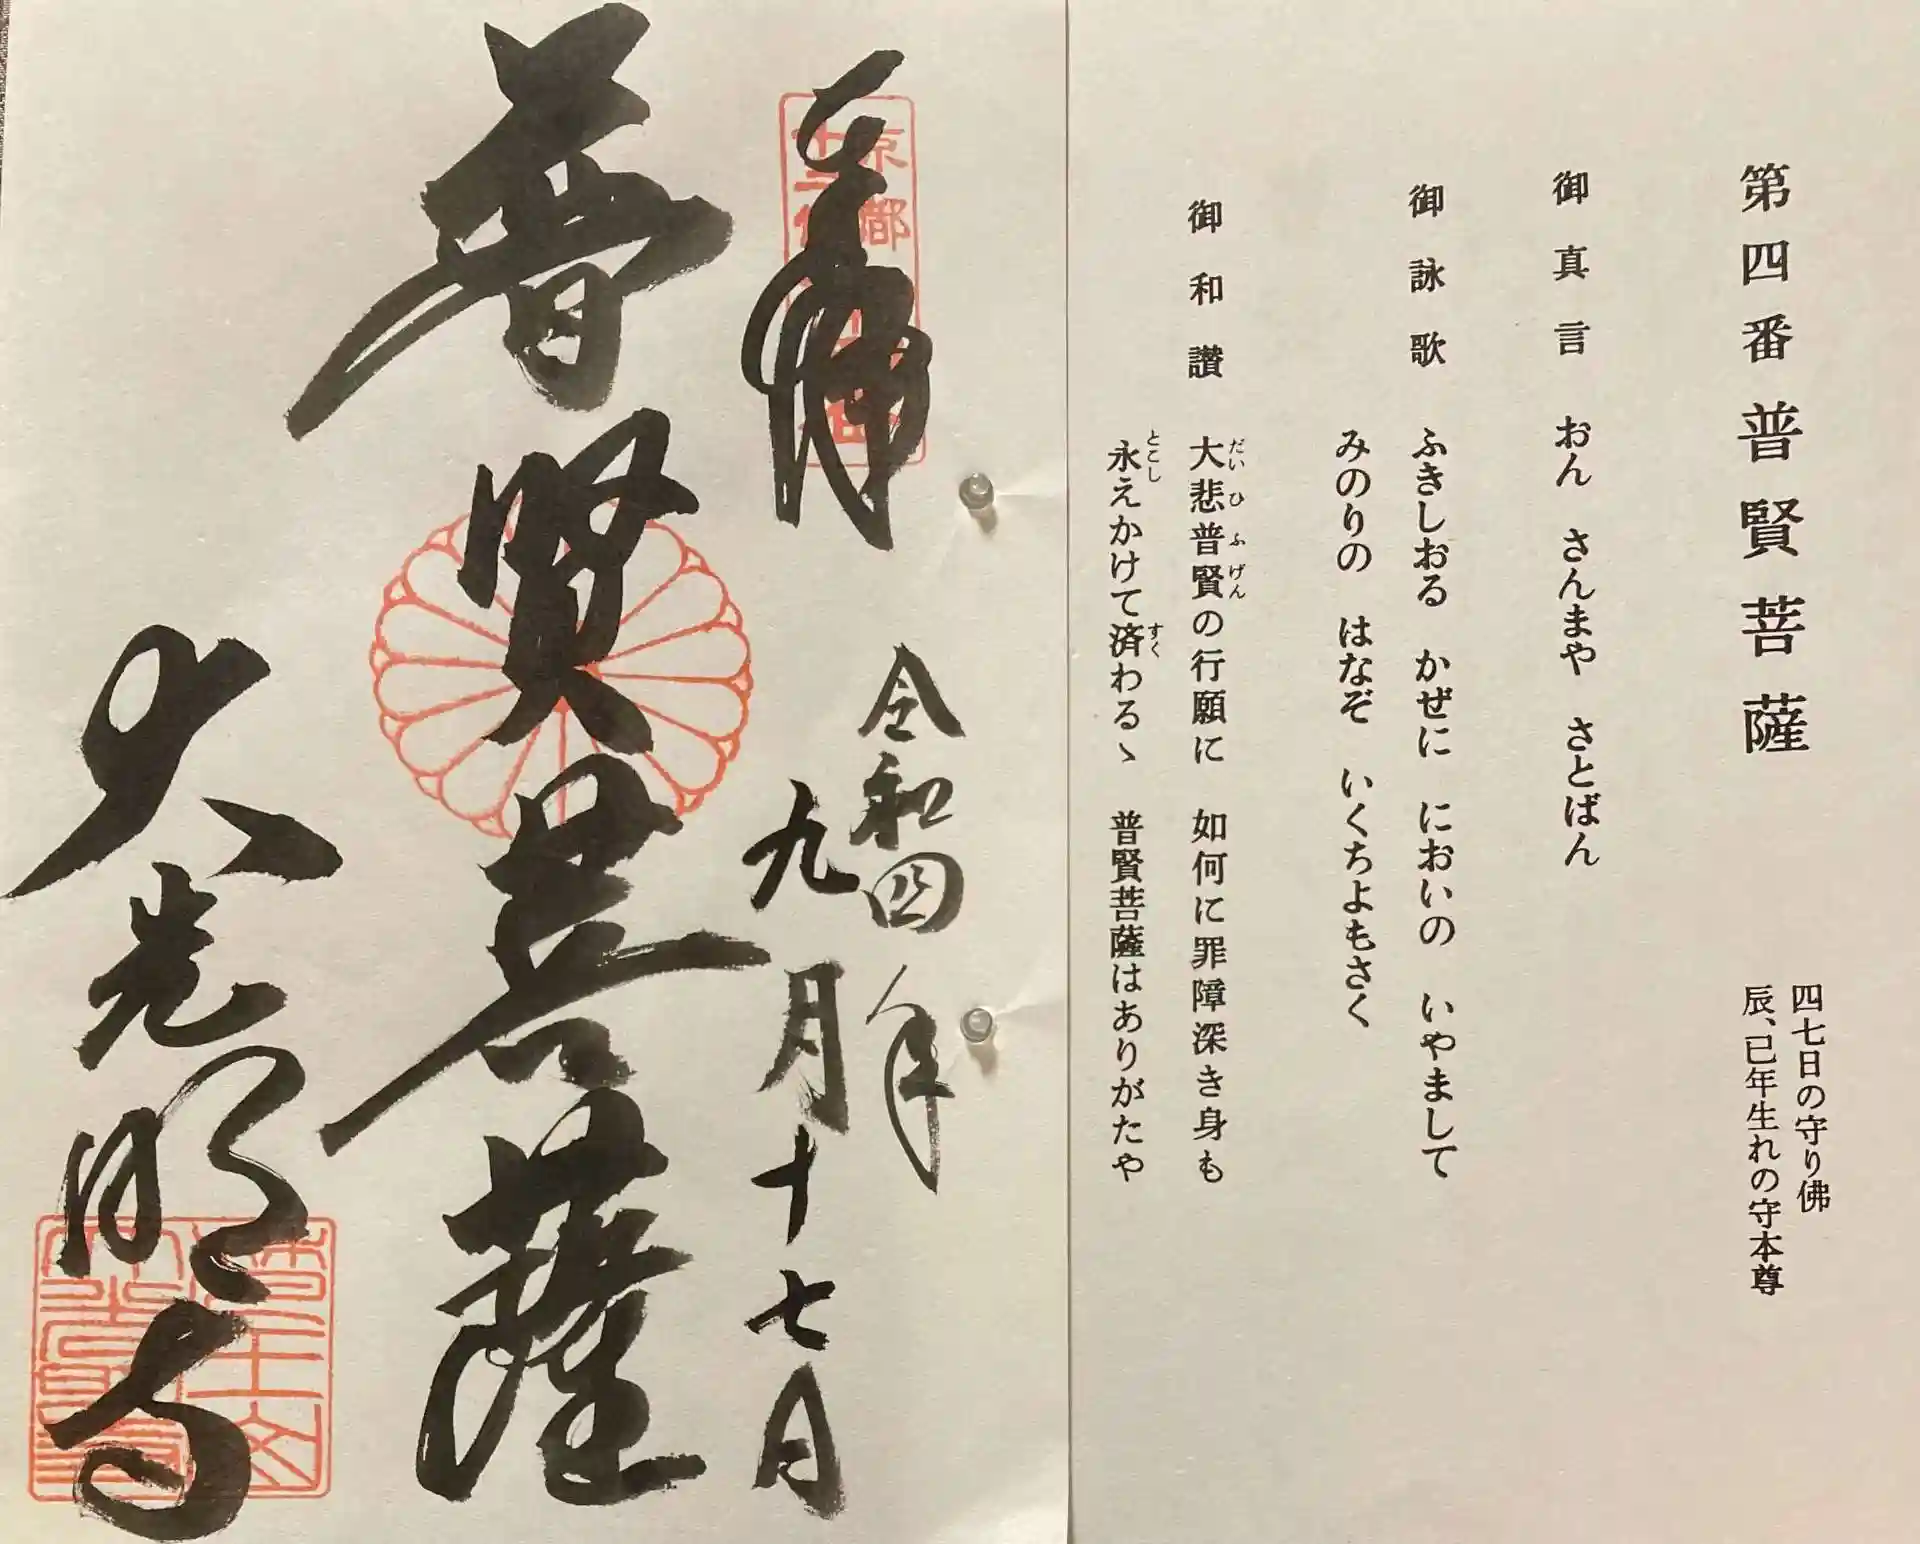 第四番普賢菩薩
四七日の守り佛
辰、巳年生れの守本尊
御真言 おん さんまや さとばん
御詠歌 ふきしおる かぜに においの いやまして
みのりの はなぞ いくちよもさく
御和讃 大悲普賢の行願に 如何に罪障深き身も
だいひふげん
永えかけて済わるゝ 普賢菩薩はありがたや
とこし
すく
奉拝
令和四年
九月十七日
普賢菩薩
大光明寺